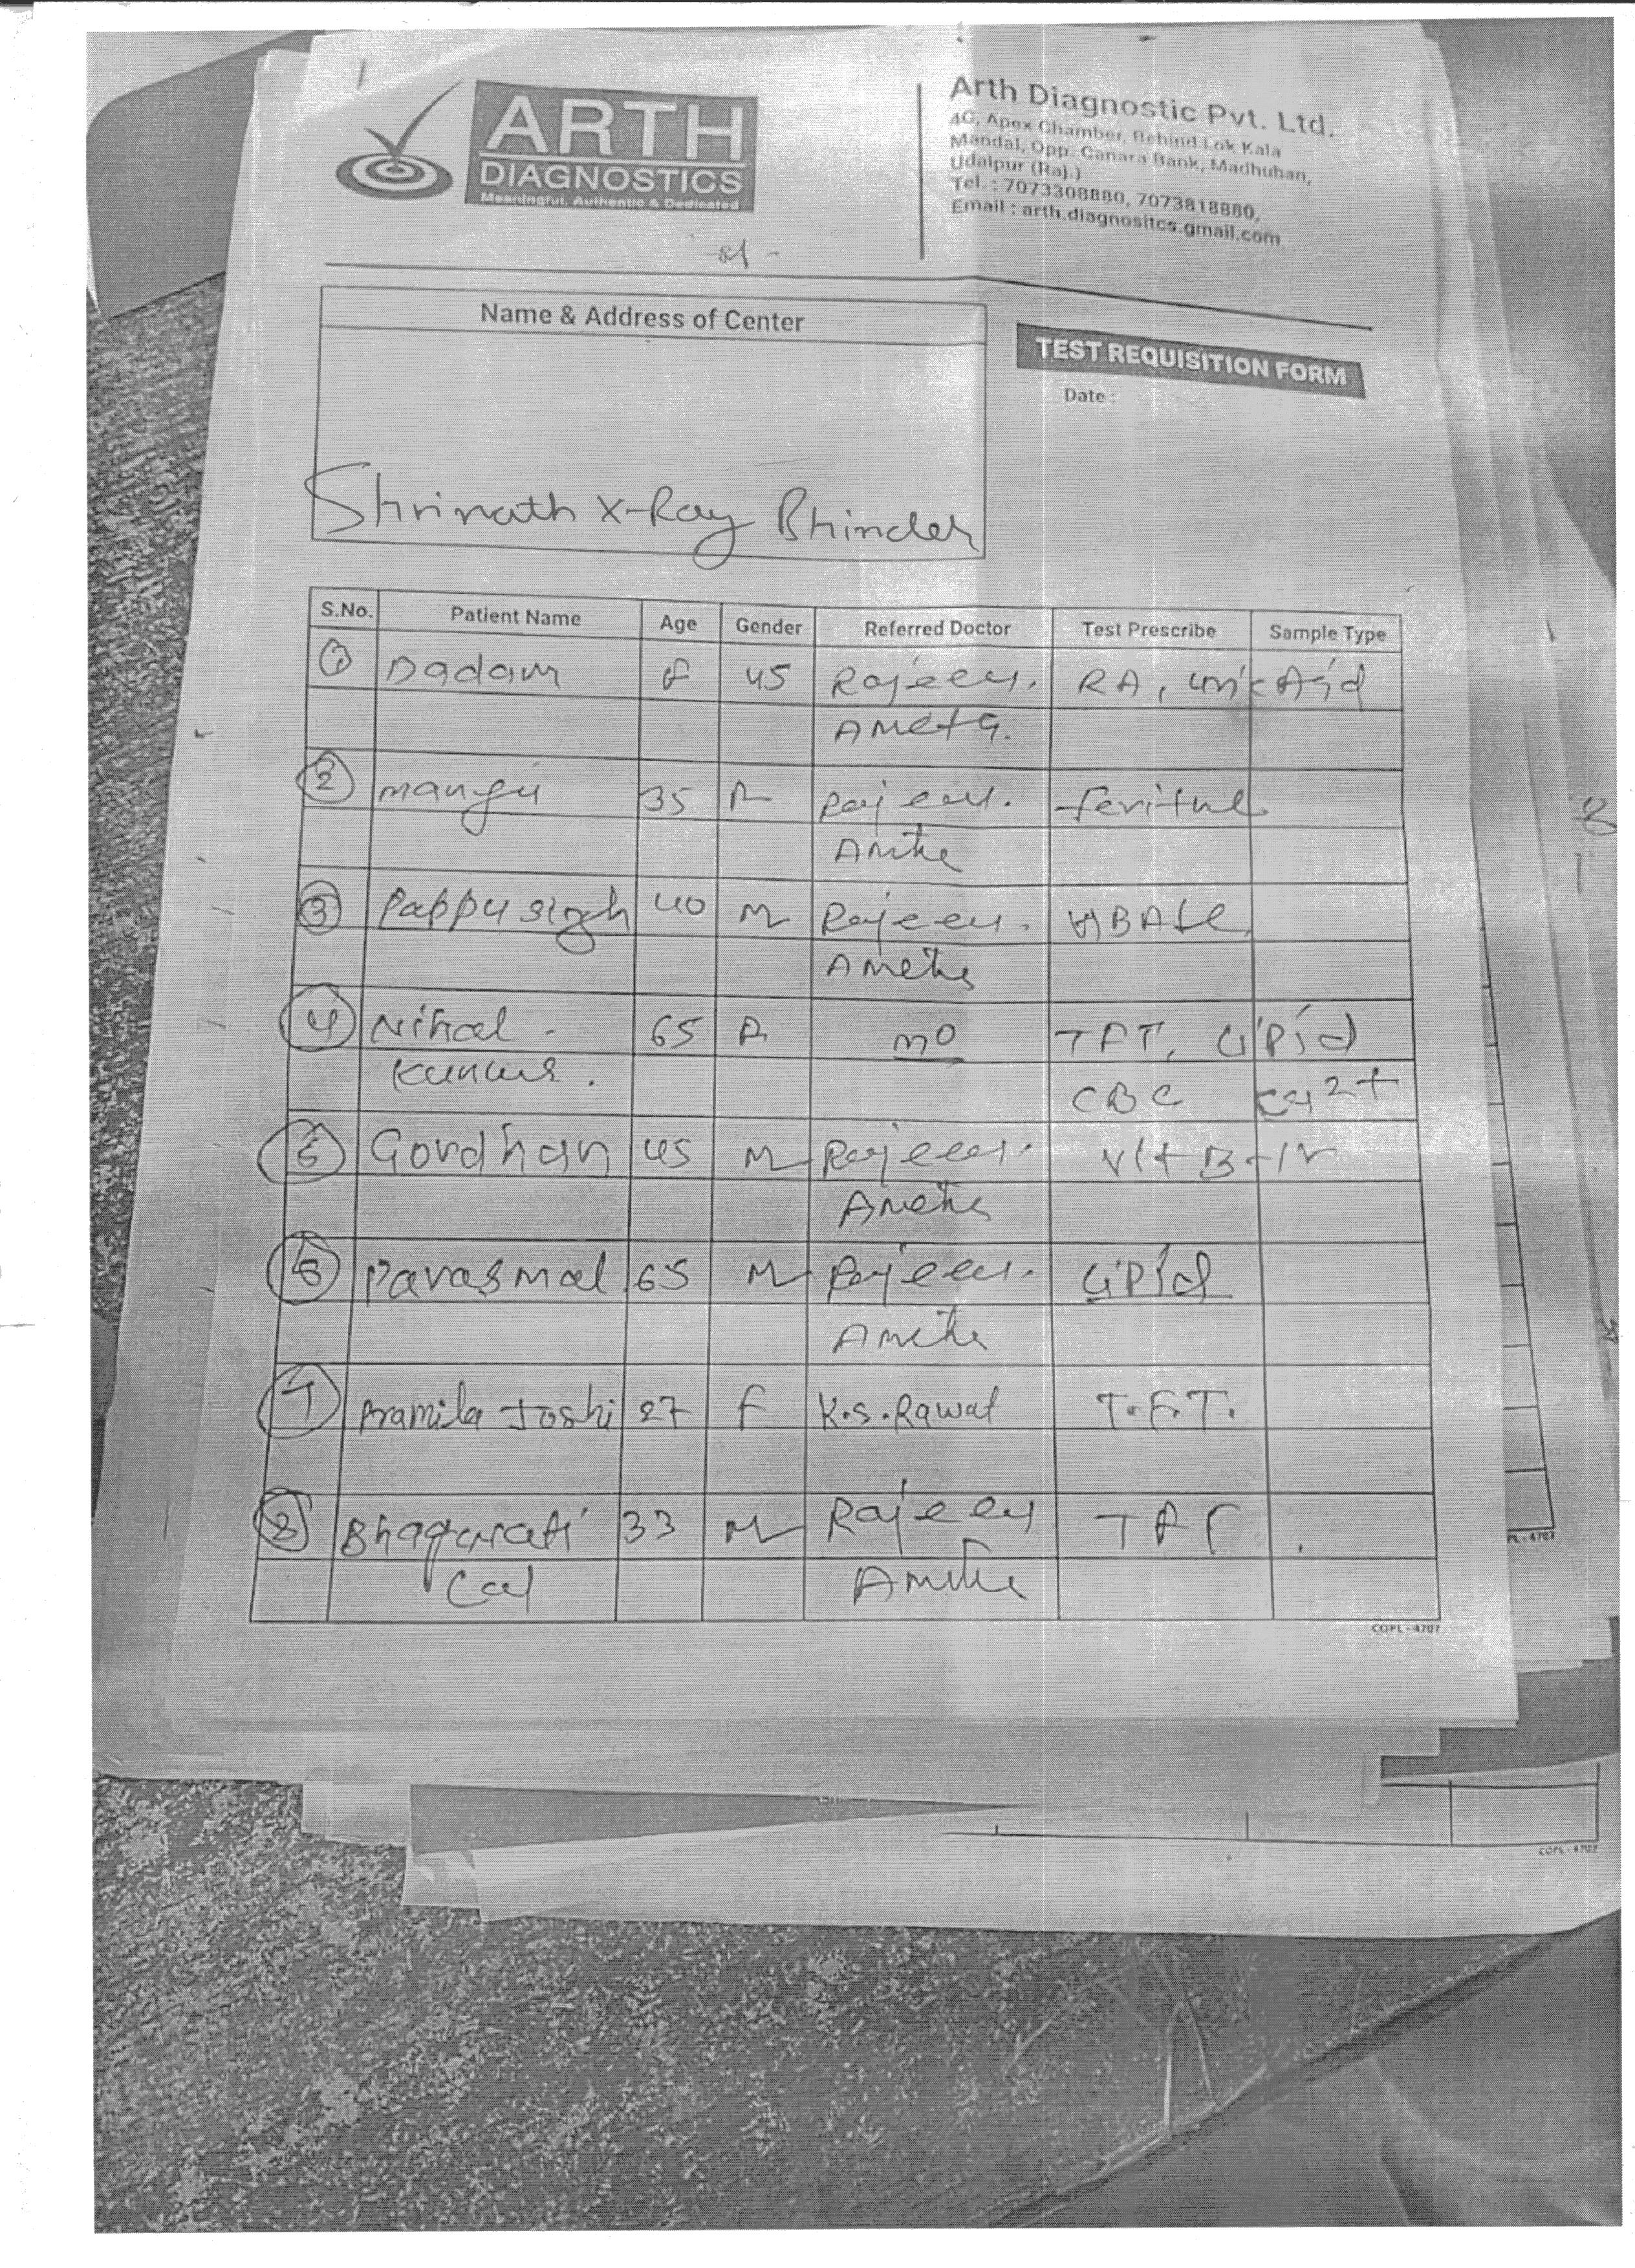 ARTH
DIAGNOSTICS
Meaningful, Authentic & Dedicated
Arth Diagnostic Pvt. Ltd.
4C, Apex Chamber, Behind Lok Kala
Mandal, Opp. Canara Bank, Madhuban,
Udaipur (Raj.)
Tel. : 7073308880, 7073818880,
Email : arth.diagnositcs.gmail.com
Name & Address of Center
TEST REQUISITION FORM
Date :
Shrinath X-Ray Bhinder
S.No. Patient Name Age Gender Referred Doctor Test Prescribe Sample Type
1 Dadam F 45 Rajeev. RA, uric Acid
Ameta.
2 mangu 35 F Rajeev. feritine
Ameta
3 Pappu singh 40 M Rajeev.
Ameta
4 Nihal 65 F mo TFT, Lipid
Kunwar. CBC Ca2+
5 Gordhan 45 M Rajeev. Vit B-12
Ameta
6 Parasmal 65 M Rajeev. Lipid
Ameta
7 Pramila Joshi 27 F K.S. Rawat T.F.T.
8 Bhagwati 33 M Rajeev TFT
Lal Ameta
COPL - 4707
PL - 4707
COPL - 4707